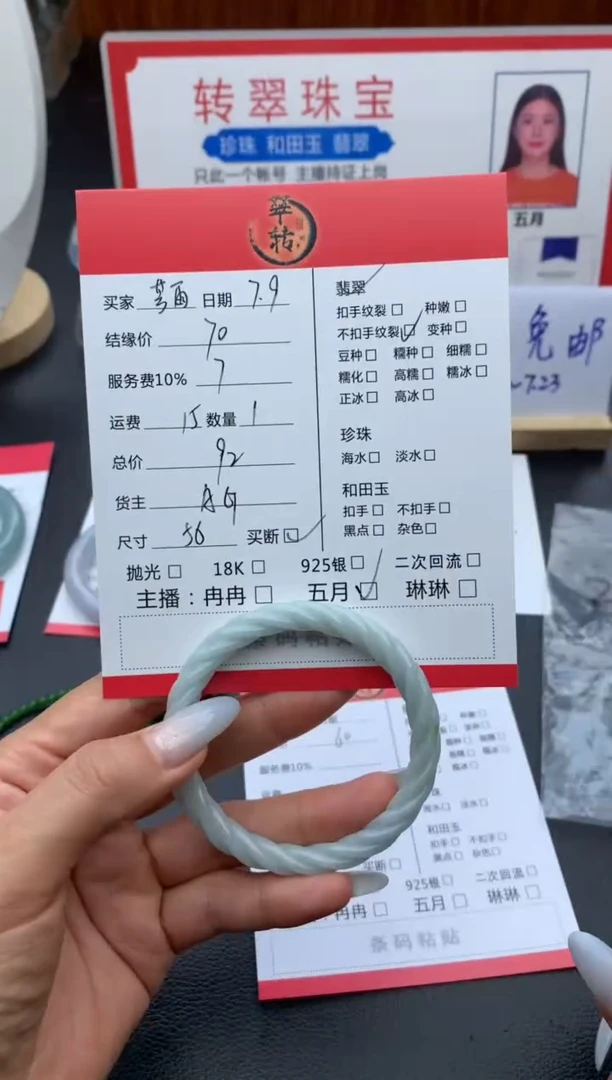 转翠珠宝
珍珠 和田玉 翡翠
只此一个帐号 主播持证上岗
五月
翠转
免邮
~7.23
买家 日期 7.9
结缘价 70
服务费10% 7
运费 15 数量 1
总价 92
货主
尺寸 56 买断☑
翡翠✓
扣手纹裂□ 种嫩□
不扣手纹裂☑ 变种□
豆种□ 糯种□ 细糯□
糯化□ 高糯□ 糯冰□
正冰□ 高冰□
珍珠
海水□ 淡水□
和田玉
扣手□ 不扣手□
黑点□ 杂色□
抛光□ 18K□ 925银□ 二次回流□
主播：冉冉□ 五月☑ 琳琳□
条码粘贴
60
服务费10%
和田玉
扣手□ 不扣手□
黑点□ 杂色□
买断□
925银□ 二次回流□
冉冉□ 五月□ 琳琳□
条码粘贴